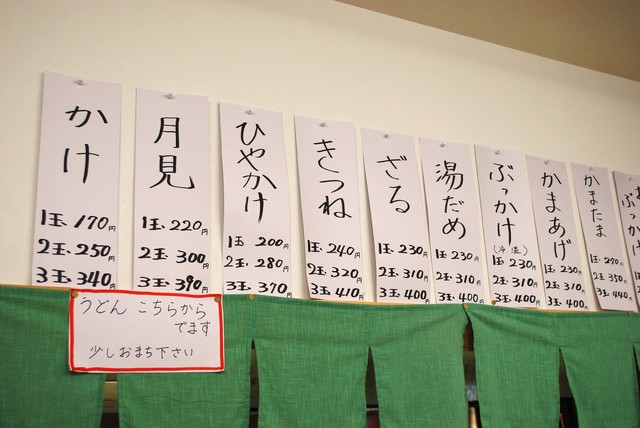 かけ
1玉.170円
2玉.250円
3玉.340円
月見
1玉.220円
2玉 300円
3玉.390円
ひやかけ
1玉 200円
2玉.280円
3玉.370円
きつね
1玉.240円
2玉.320円
3玉.410円
ざる
1玉.230円
2玉.310円
3玉.400円
湯だめ
1玉.230円
2玉.310円
3玉.400円
ぶっかけ
(冷 温)
1玉 230円
2玉.310円
3玉.400円
かまあげ
1玉.230円
2玉.310円
3玉.400円
かまたま
1玉.270円
2玉.350円
3玉.440円
ぶっか
うどん こちらから
でます
少しおまち下さい